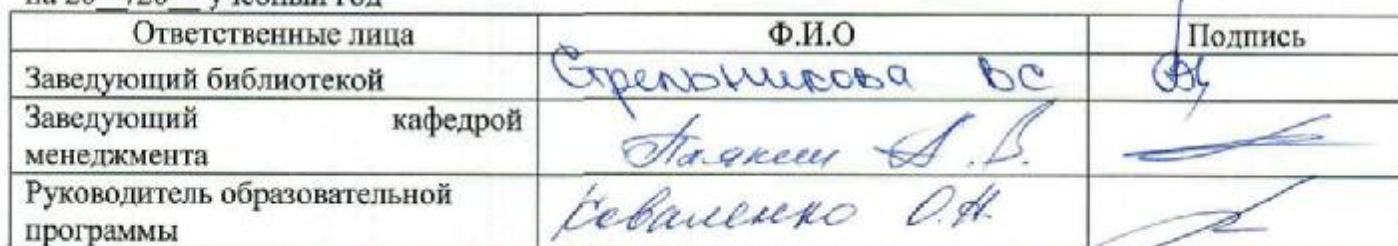 на 20__/20__ учебный год
Ответственные лица Ф.И.О Подпись
Заведующий библиотекой Стрельникова ВС
Заведующий кафедрой
менеджмента А.В.
Руководитель образовательной
программы Коваленко О.Н.